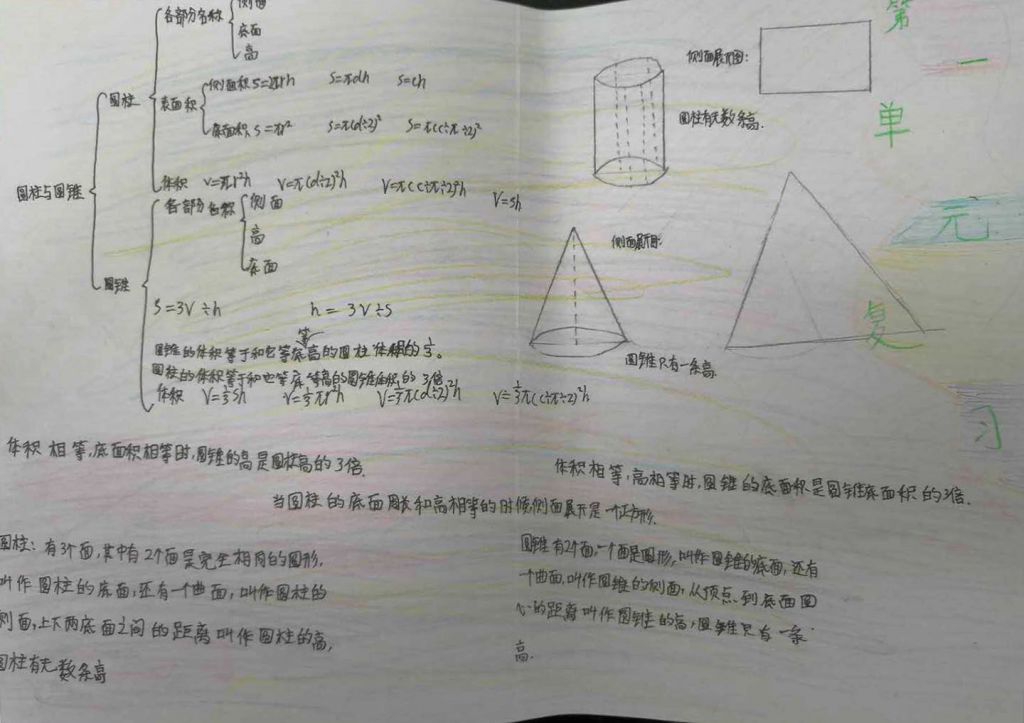 第一单元复习
圆柱与圆锥
圆柱
各部分名称
侧面
底面
高
表面积
侧面积 S=2πrh S=πdh S=ch
底面积 S=πr² S=π(d÷2)² S=π(c÷π÷2)²
体积 V=πr²h V=π(d÷2)²h V=π(c÷π÷2)²h V=sh
圆锥
各部分名称
侧面
高
底面
S=3V÷h h=3V÷S
圆锥的体积等于和它等底等高的圆柱体积的1/3。
圆柱的体积等于和它等底等高的圆锥体积的3倍
体积 V=1/3sh V=1/3πr²h V=1/3π(d÷2)²h V=1/3π(c÷π÷2)²h
侧面展开图:
圆柱有无数条高.
侧面展开图:
圆锥只有一条高.
体积相等,底面积相等时,圆锥的高是圆柱高的3倍.
体积相等,高相等时,圆锥的底面积是圆锥底面积的3倍.
当圆柱的底面周长和高相等的时候侧面展开是一个正方形.
圆柱:有3个面,其中有2个面是完全相同的圆形,
叫作圆柱的底面,还有一个曲面,叫作圆柱的
侧面,上下两底面之间的距离叫作圆柱的高,
圆柱有无数条高
圆锥有2个面,一个面是圆形,叫作圆锥的底面,还有
一个曲面,叫作圆锥的侧面,从顶点到底面圆
心的距离叫作圆锥的高,圆锥只有一条
高.